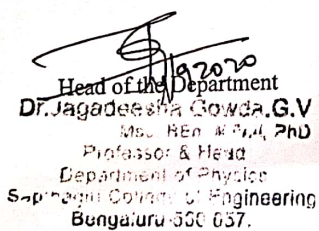 9/2020
Head of the Department
Dr. Jagadeesha Gowda. G.V
PhD
Professor & Head
Department of Physics
Sapthagiri College of Engineering
Bengaluru-560 057.